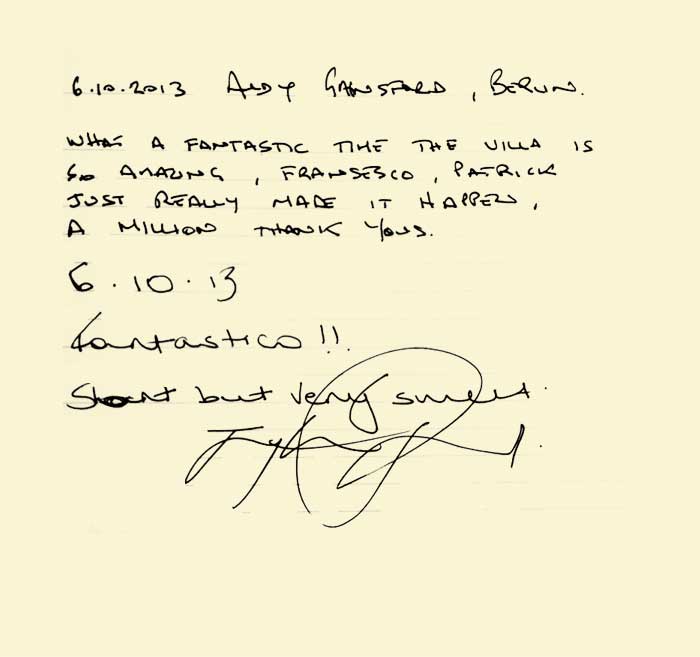 6.10.2013 ANDY GANSFORD, BERLIN.
WHAT A FANTASTIC TIME THE VILLA IS
SO AMAZING, FRANSESCO, PATRICK
JUST REALLY MADE IT HAPPEN,
A MILLION THANK YOUS.
6.10.13
fantastico!!
Short but very sweet.